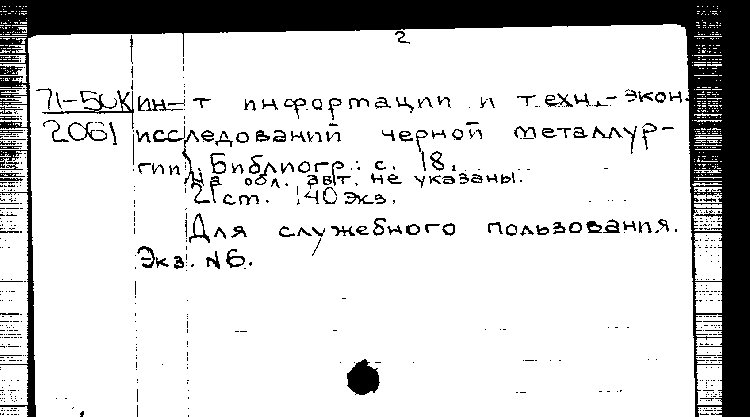 2
71-50К ин-т информации и техн.-экон.
2061 исследований черной металлур-
гии). Библиогр.: с. 18.
На обл. авт. не указаны.
21 cm. 140 экз.
Для служебного пользования.
Экз. №6.